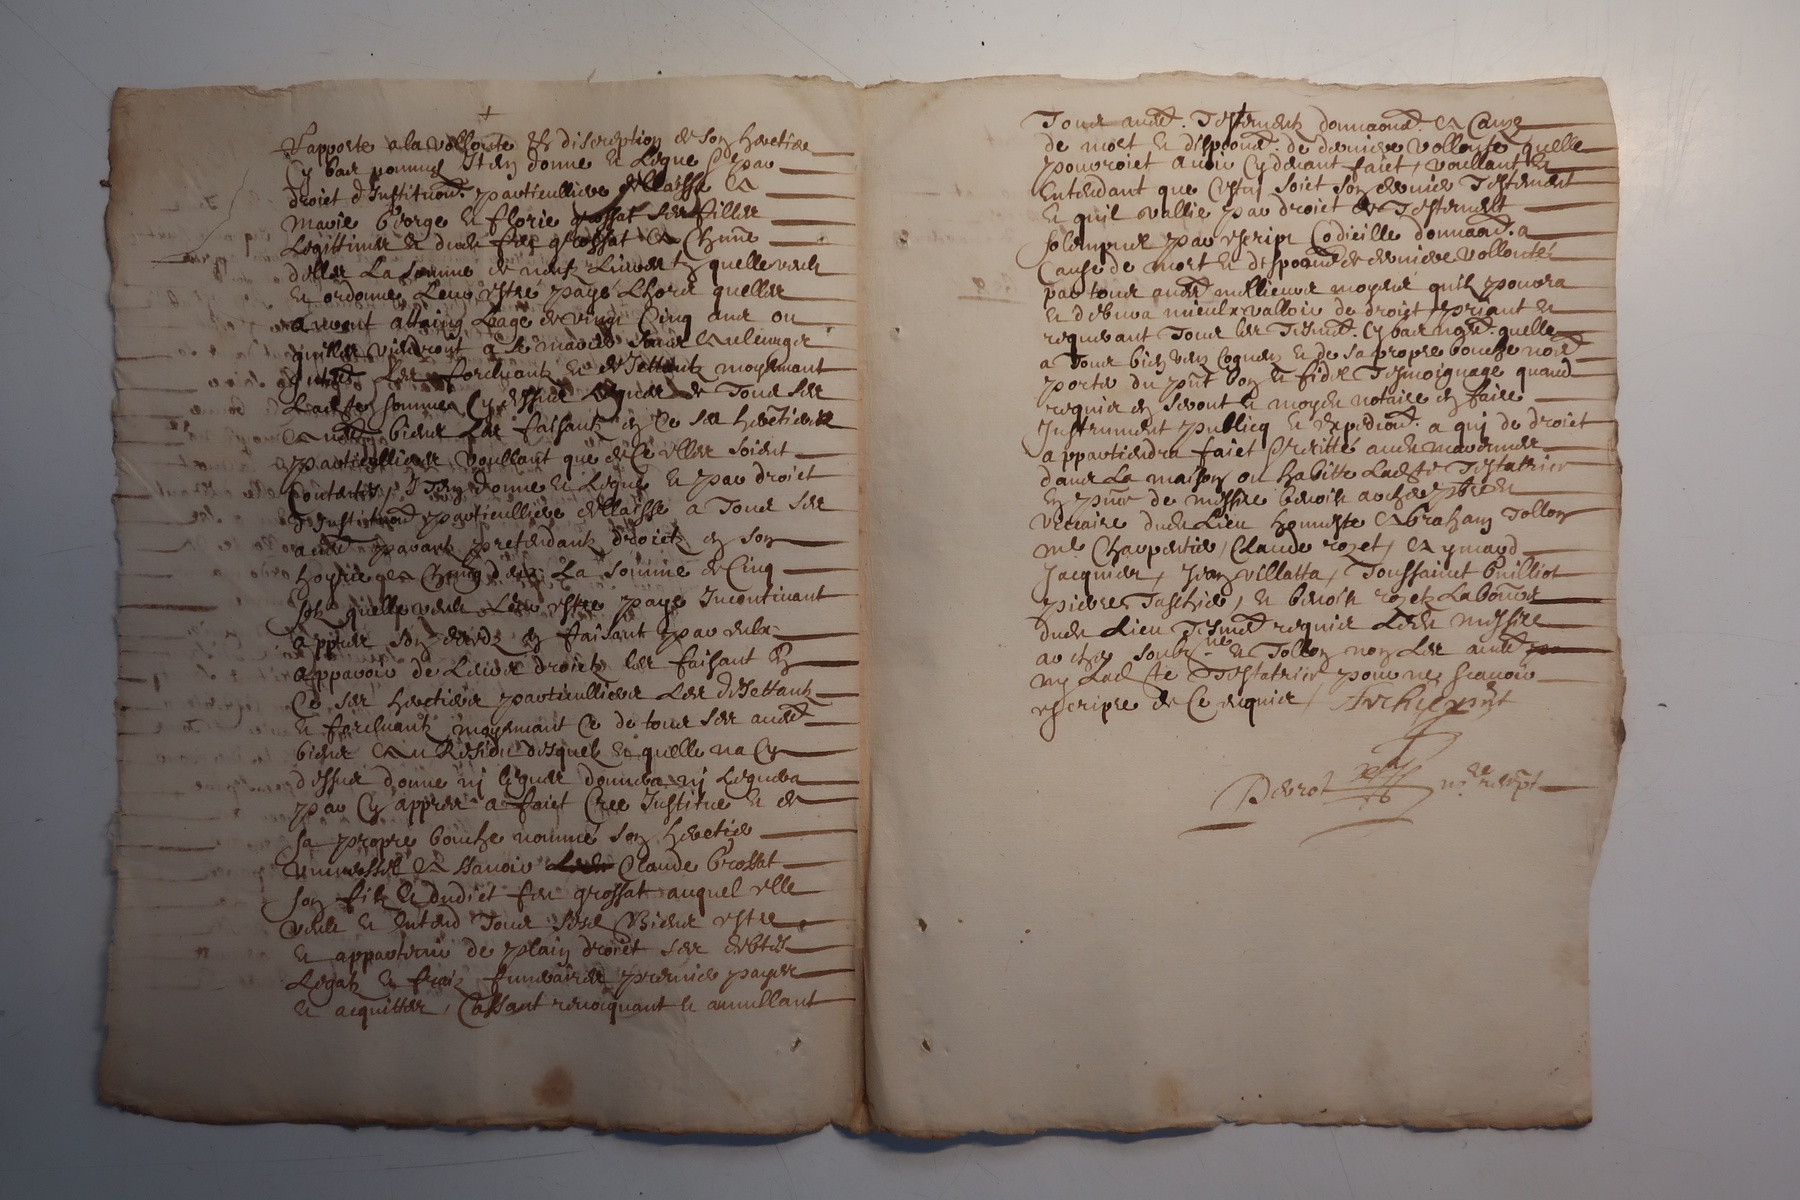 +
rapporte a la vollonte et discreption de son heretier
Cy bas nommé Item donne et legue et par
droict d'Institution particulliere delaisse a
Marie George et florie grossat ses filles
Legittimes et dudit feu grossat a Chune
d'elles La somme de neufz Livres tz quelle veult
et ordonne Leur estre payé Lhors quelles
auront attaing Leage de vingt Cinq ans ou
quelles viendront a se marier sans
les forcluantz et dejettantz moyenant
Ladite somme Cy dessus leguee de Tous ses
biens Les faisant en Ce ses heretieres
particullieres, voullant que de Ce elles soient
Contantes, Item donne et Legue et par droict
d'Institution particulliere delaisse a Tous ses
aultres parants pretendantz droictz en son
hoyrie et a Chung d'eulx La somme de Cinq
solz quelle veult Leur estre paye Incontinant
appres son decedz en faisant par eulx
apparoir de Leurs droictz les faisant en
Ce ses heretiers particulliers Les dejettantz
et forcluantz moyennant Ce de tous ses aultres
biens Au Residu desquelz et quelle na Cy
dessus donne ny legue donnera ny Leguera
par Cy appres a faict Cree Institue et de
sa propre bouche nommé son heretier
universsel A scavoir Claude Grossat
son filz et dudict feu grossat auquel elle
veult et entend Tous sesd Biens estre
et appartenir de plain droict ses debtes
Legatz et fraiz funeraires premier payes
et acquittes, Cassant revocquant et annullant
Tous aultres Testements donnations A Cause
de mort et dispositions de derniere Vollonté quelle
pourroict avoir Cy devant faict, voullant et
Entendant que Cestuy soict son dernier Testement
et quil vallie par droict de Testement
solempnel par escript Codicille donnation a
Cause de mort et disposition de derniere vollonté
par tous aultres meillieurs moyens quil pourra
et debvra mieulx valloir de droict priant et
requerant Tous les Tesmoings Cy bas nommés quelle
a Tous bien veu Cogneu et de sa propre bouche nommé
porter du pnt bon et fidel Tesmoignage quand
requis en seront et moyen notaire en faire
Instrument publicq et expedition a qui de droict
appartiendra faict
dans La maison ou habitte Ladite Testatrice
En pnce de messire benoist archer pbre et
viccaire dudit Lieu honneste Abraham Tollon
me Charpentier, Claude rozet, Aymard
Jacquier, Jean villatta, Toussainct
pierre, et benoist rozet Laboureurs
dudit Lieu Tesmoings requis Ledit messire
archer soubzne et Tollon non Les aultres
ny Ladite Testatrice pour ne scavoir
escripre de Ce enquis, Archer pnt
Perrot nre recept